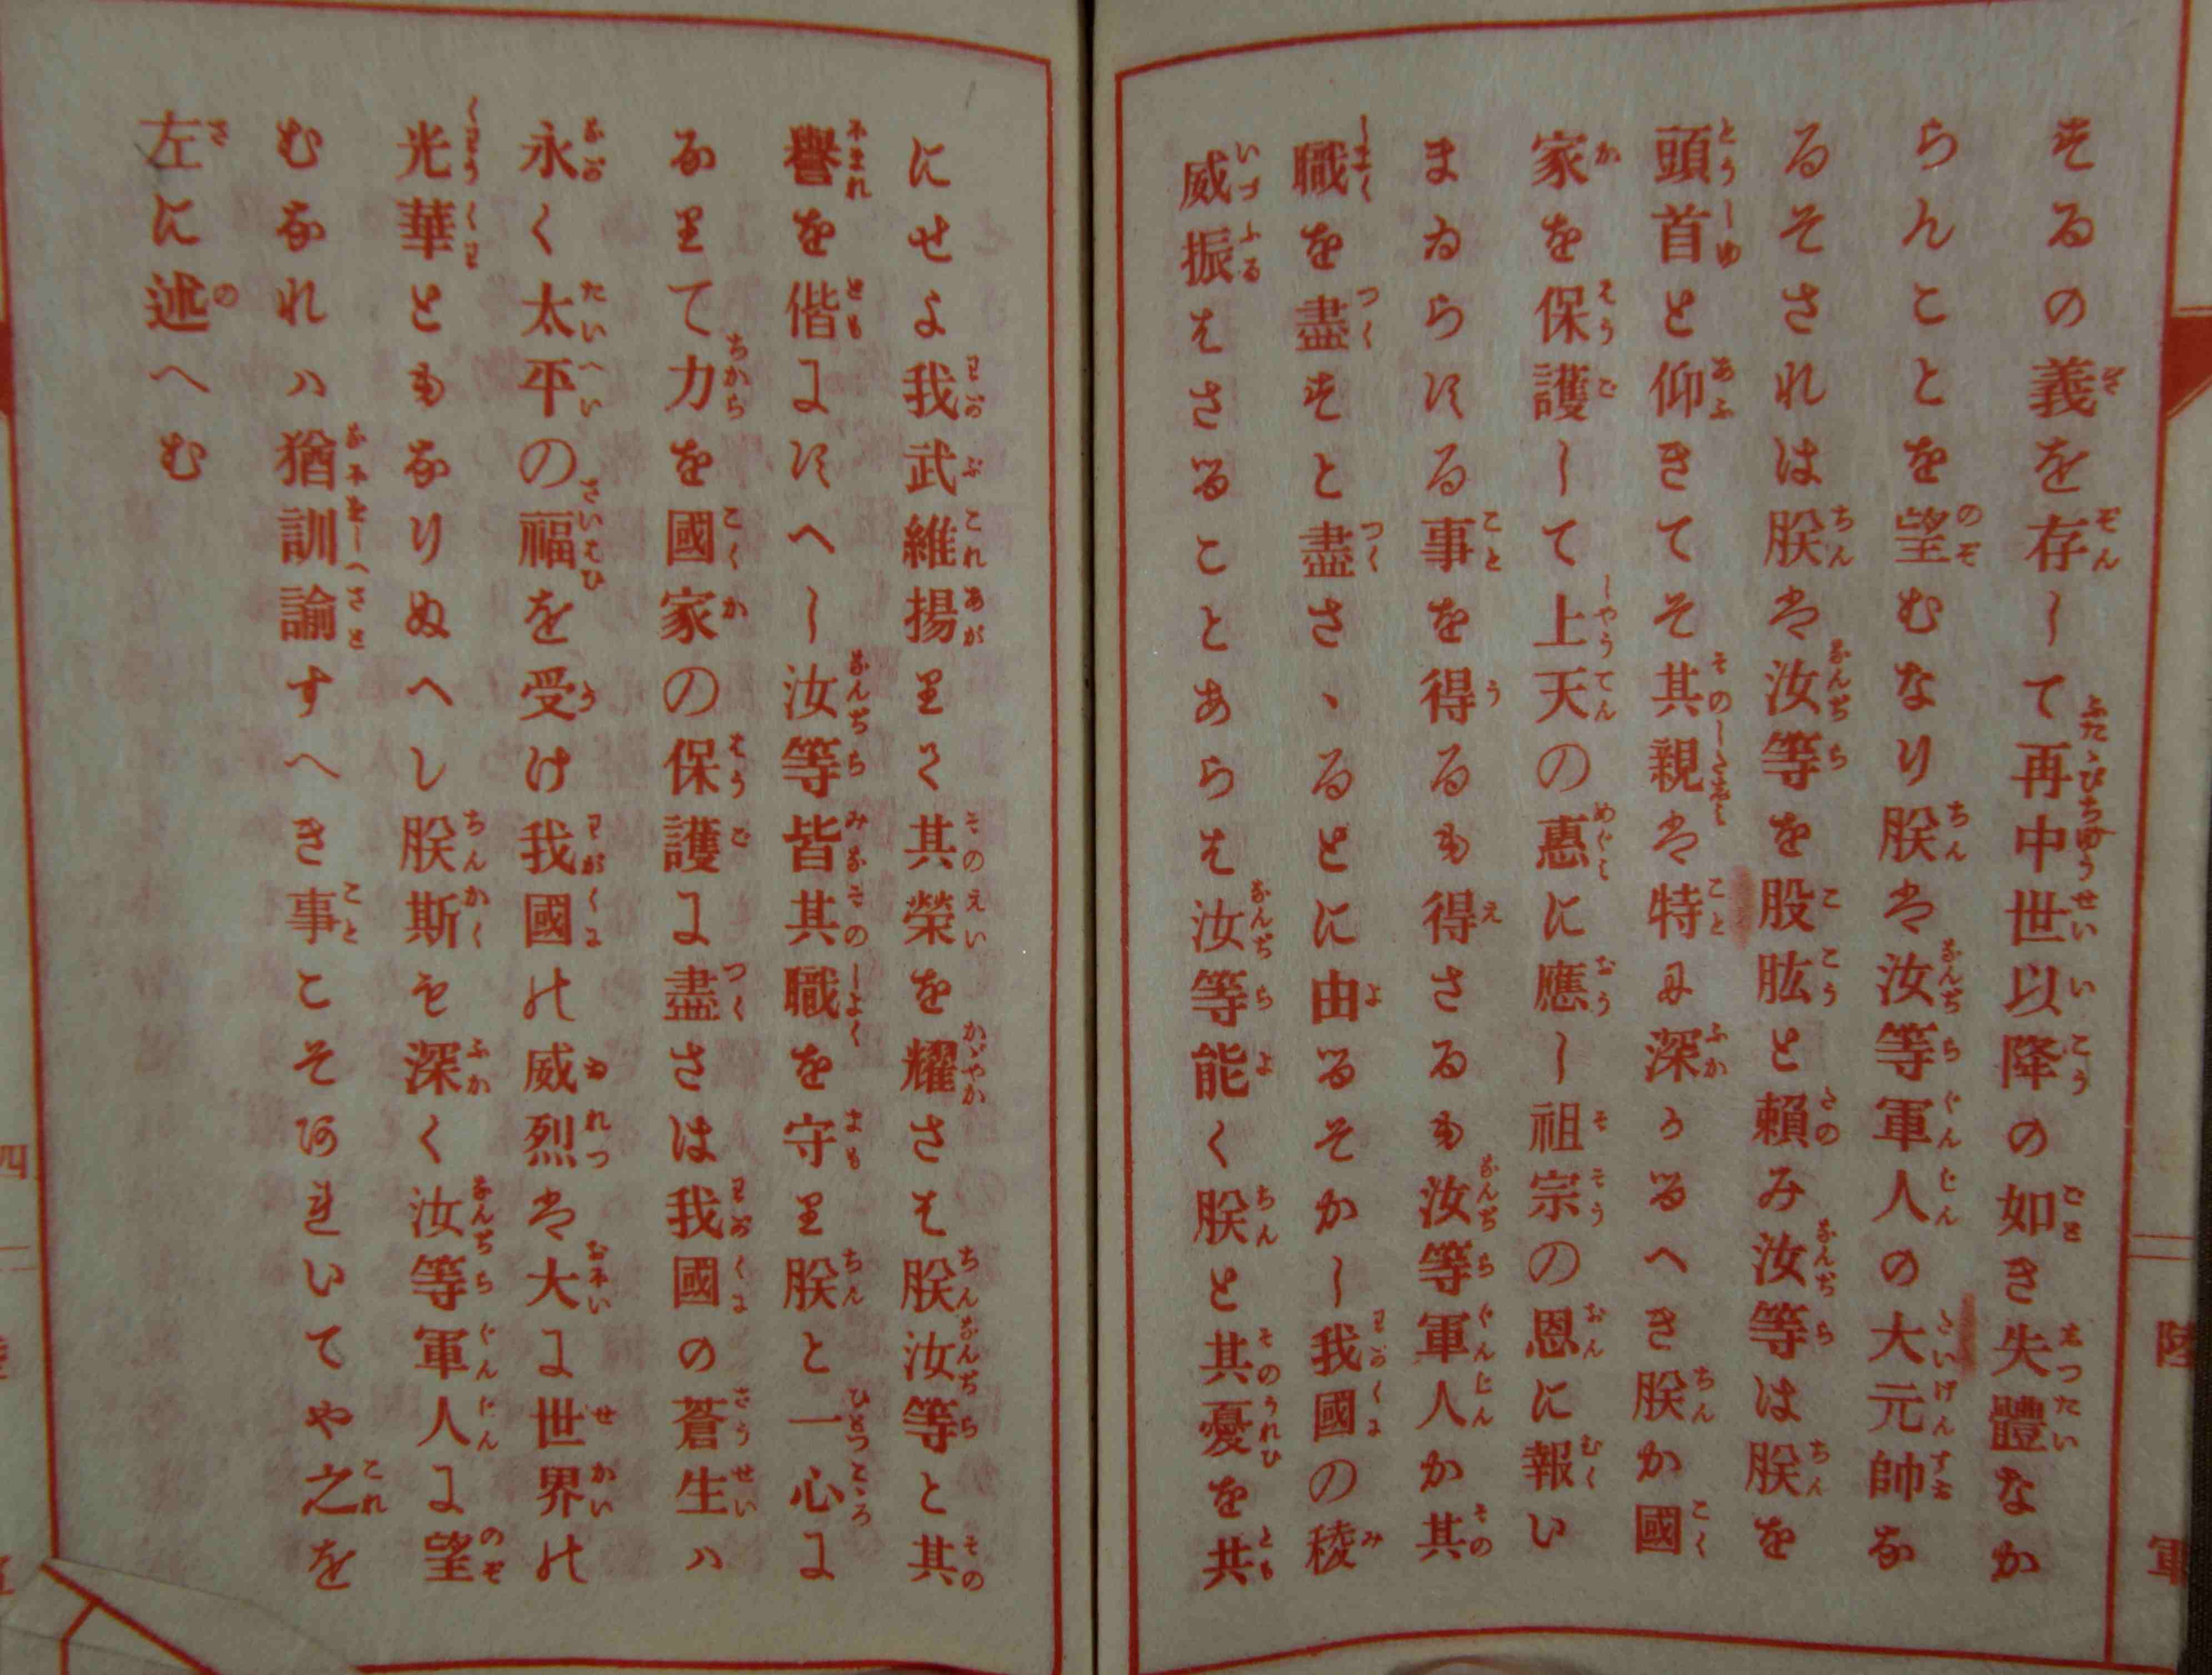 するの義を存して再中世以降の如き失體なか
らんことを望むなり朕は汝等軍人の大元帥な
るそされは朕は汝等を股肱と頼み汝等は朕を
頭首と仰きてそ其親は特に深かるへき朕か國
家を保護して上天の惠に應し祖宗の恩に報い
まゐらする事を得るも得さるも汝等軍人か其
職を盡すと盡さゝるとに由るそかし我國の稜
威振はさることあらは汝等能く朕と其憂を共
にせよ我武維揚りて其榮を耀さは朕汝等と其
譽を偕にすへし汝等皆其職を守り朕と一心に
なりて力を國家の保護に盡さは我國の蒼生ハ
永く太平の福を受け我國の威烈は大に世界の
光華ともなりぬへし朕斯も深く汝等軍人に望
むなれハ猶訓諭すへき事こそあれいてや之を
左に述へむ
陸軍
四